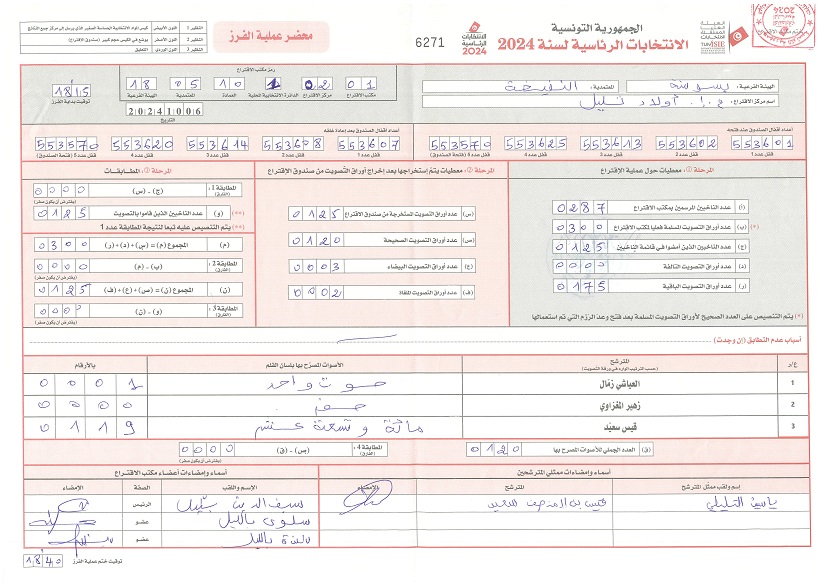 الجمهورية التونسية
الانتخابات الرئاسية لسنة 2024
الانتخابات الرئاسية 2024
6271
محضر عملية الفرز
النظير 1
النظير 2
النظير 3
اللون الأبيض
اللون الأصفر
اللون الوردي
الهيئة الفرعية :
المعتمدية :
النفيضة
اسم مركز الاقتراع :
أولاد
رمز مكتب الاقتراع
01 02 1 10 05 18
مكتب الاقتراع
مركز الاقتراع
الدائرة الانتخابية المحلية
العمادة
المعتمدية
الهيئة الفرعية
20241006
التاريخ
18 15
توقيت بداية الفرز
أعداد أقفال الصندوق عند فتحه
553601 553602 553613 553625 553570
قفل عدد 1
قفل عدد 2
قفل عدد 3
قفل عدد 4
قفل عدد 5 (فتحة الصندوق)
أعداد أقفال الصندوق بعد إعادة غلقه
553607 553608 553614 553620 553570
قفل عدد 1
قفل عدد 2
قفل عدد 3
قفل عدد 4
قفل عدد 5 (فتحة الصندوق)
المرحلة 1: معطيات حول عملية الإقتراع
(أ) عدد الناخبين المرسمين بمكتب الاقتراع 0287
(*) (ب) عدد أوراق التصويت المسلمة فعليا لمكتب الاقتراع 0300
(ج) عدد الناخبين الذين أمضوا في قائمة الناخبين 0125
(د) عدد أوراق التصويت التالفة 0000
(ر) عدد أوراق التصويت الباقية 0175
(*) يتم التنصيص على العدد الصحيح لأوراق التصويت المسلمة بعد فتح وعد الرزم التي تم استعمالها
المرحلة 2: معطيات يتم إستخراجها بعد إخراج أوراق التصويت من صندوق الإقتراع
(س) عدد أوراق التصويت المستخرجة من صندوق الاقتراع 0125
(ص) عدد أوراق التصويت الصحيحة 0120
(ع) عدد أوراق التصويت البيضاء 0003
(ف) عدد أوراق التصويت الملغاة 0002
المرحلة 3: المطابقات
المطابقة 1: (الفارق) (ج) - (س) 0000
(يفترض أن يكون صفر)
(**) (و) عدد الناخبين الذين قاموا بالتصويت 0125
(**) يتم التنصيص عليه تبعا لنتيجة المطابقة عدد 1
(م) المجموع (م) = (س) + (د) + (ر) 0300
المطابقة 2: (الفارق) (ب) - (م) 0000
(يفترض أن يكون صفر)
(ن) المجموع (ن) = (ص) + (ع) + (ف) 0125
المطابقة 3: (الفارق) (و) - (ن) 0000
(يفترض أن يكون صفر)
أسباب عدم التطابق (إن وجدت)
ع/د
المترشح
(حسب الترتيب الوارد في ورقة التصويت)
الأصوات المصرّح بها بلسان القلم
بالأرقام
1 العياشي زمّال صوت واحد 0001
2 زهير المغزاوي صفر 0000
3 قيس سعيّد مائة وتسعة عشر 0119
(ق) العدد الجملي للأصوات المصرح بها 0120
المطابقة 4: (الفارق) (ص) - (ق) 0000
(يفترض أن يكون صفر)
أسماء وإمضاءات ممثلي المترشحين
إسم ولقب ممثل المترشح
المترشح
الإمضاء
أسماء وإمضاءات أعضاء مكتب الاقتراع
الإسم واللقب
الصفة
الإمضاء
الرئيس
سلوى بالليل عضو
بالليل عضو
توقيت ختم عملية الفرز 18 40